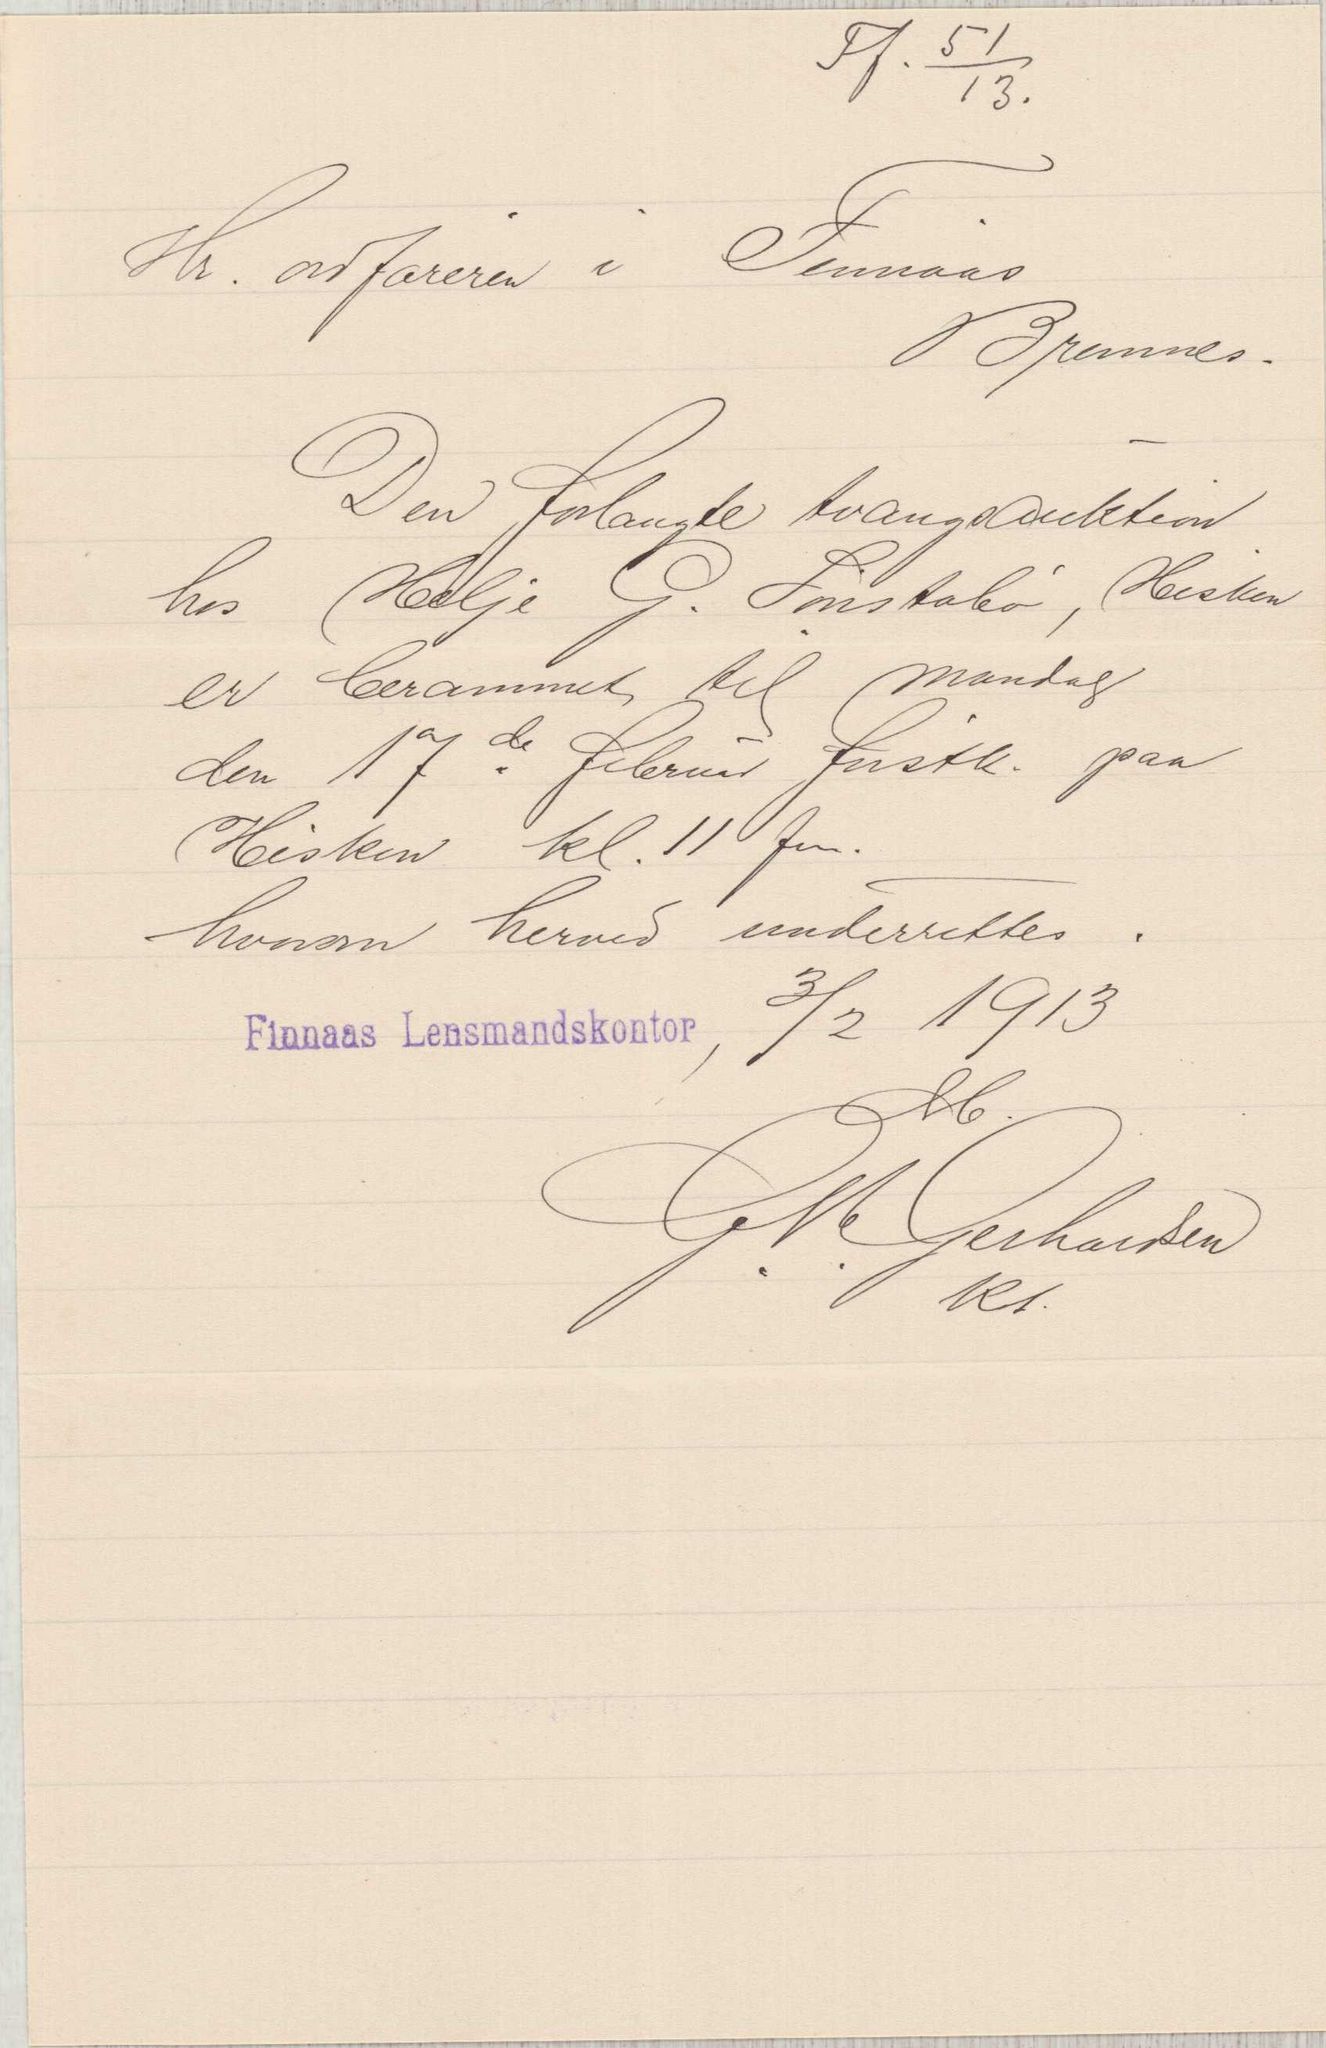 Tf. 51/13.
Hr. ordføreren i Finnaas
Bremnes.
Den forlangte tvangsauktion
hos Helje G. Tönstabö, Hisken
er berammet til mandag
den 17de februar førstk. paa
Hisken kl. 11 fm.
hvorom herved underrettes.
Finnaas Lensmandskontor, 3/2 1913
G. M. Gerhardsen
kst.